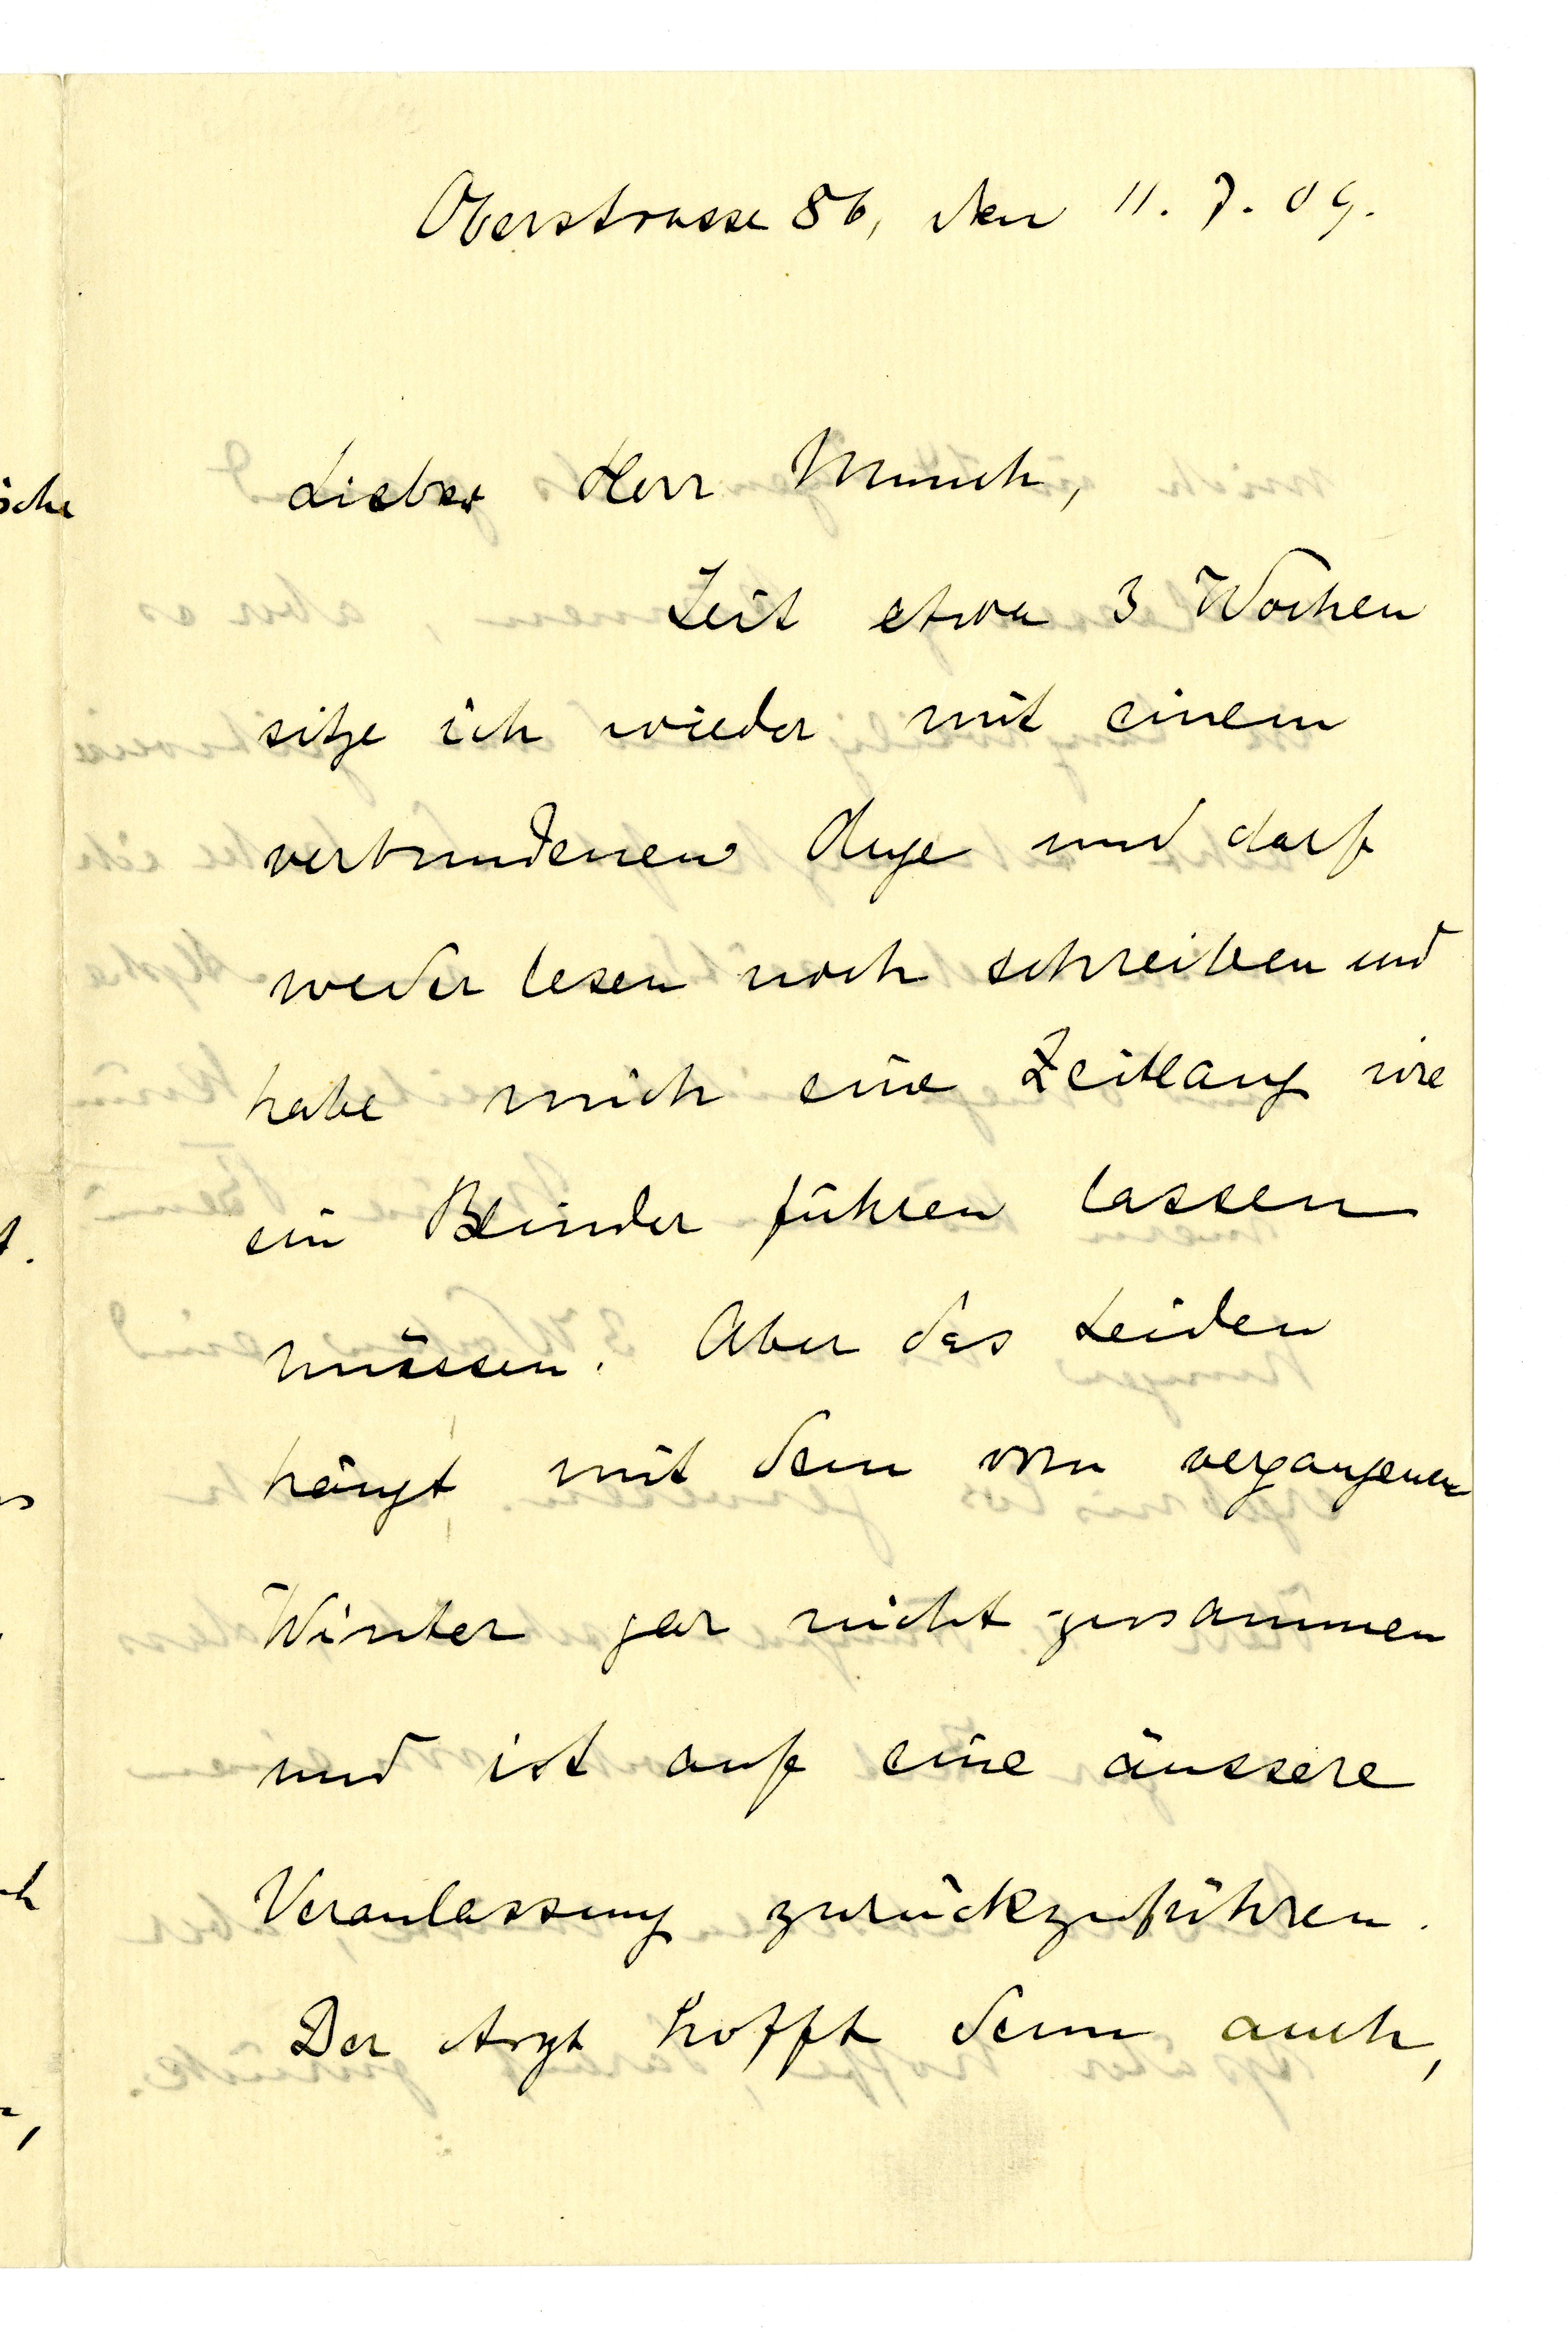 Oberstrasse 86, den 11. 7. 09.
Lieber Herr Munch,
Seit etwa 3 Wochen
sitze ich wieder mit einem
verbundenen Auge und darf
weder lesen noch schreiben und
habe mich eine Zeitlang wie
ein Blinder führen lassen
müssen. Aber das Leiden
hängt mit dem vom vergangenen
Winter gar nicht zusammen
und ist auf eine äussere
Veranlassung zurückzuführen.
Der Arzt hofft denn auch,